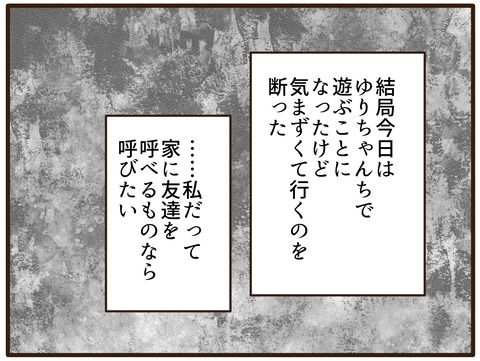 結局今日は
ゆりちゃんちで
遊ぶことに
なったけど
気まずくて行くのを
断った
……私だって
家に友達を
呼べるものなら
呼びたい